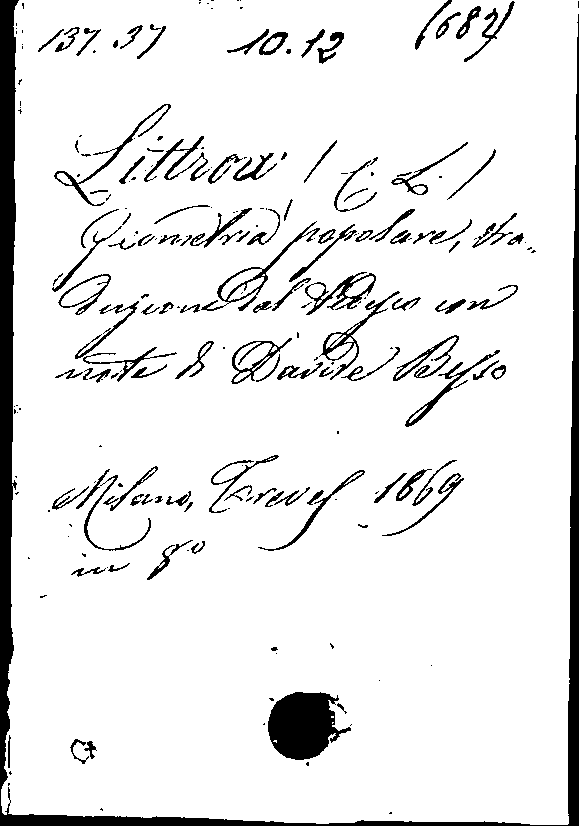 137.37 10.12 (682)
Littrow (C. L.)
Geometria popolare, tra-
duzione dal Tedesco con
note di Davide Besso
Milano, Treves 1869
in 8º